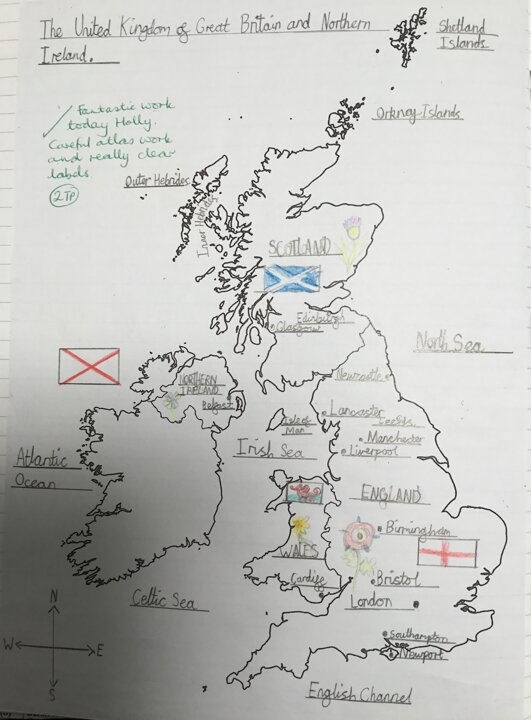 The United Kingdom of Great Britain and Northern
Ireland.
Shetland
Islands
✓ Fantastic work
today Holly.
Careful atlas work
and really clear
labels
2TP
Orkney Islands
Outer Hebrides
Inner Hebrides
SCOTLAND
Edinburgh
Glasgow
North Sea
Newcastle
NORTHERN
IRELAND
Belfast
Isle of
Man
Lancaster
Leeds
Manchester
Liverpool
Irish Sea
Atlantic
Ocean
ENGLAND
Birmingham
WALES
Cardiff
Bristol
London
Celtic Sea
Southampton
Newport
English Channel
N
W
E
S